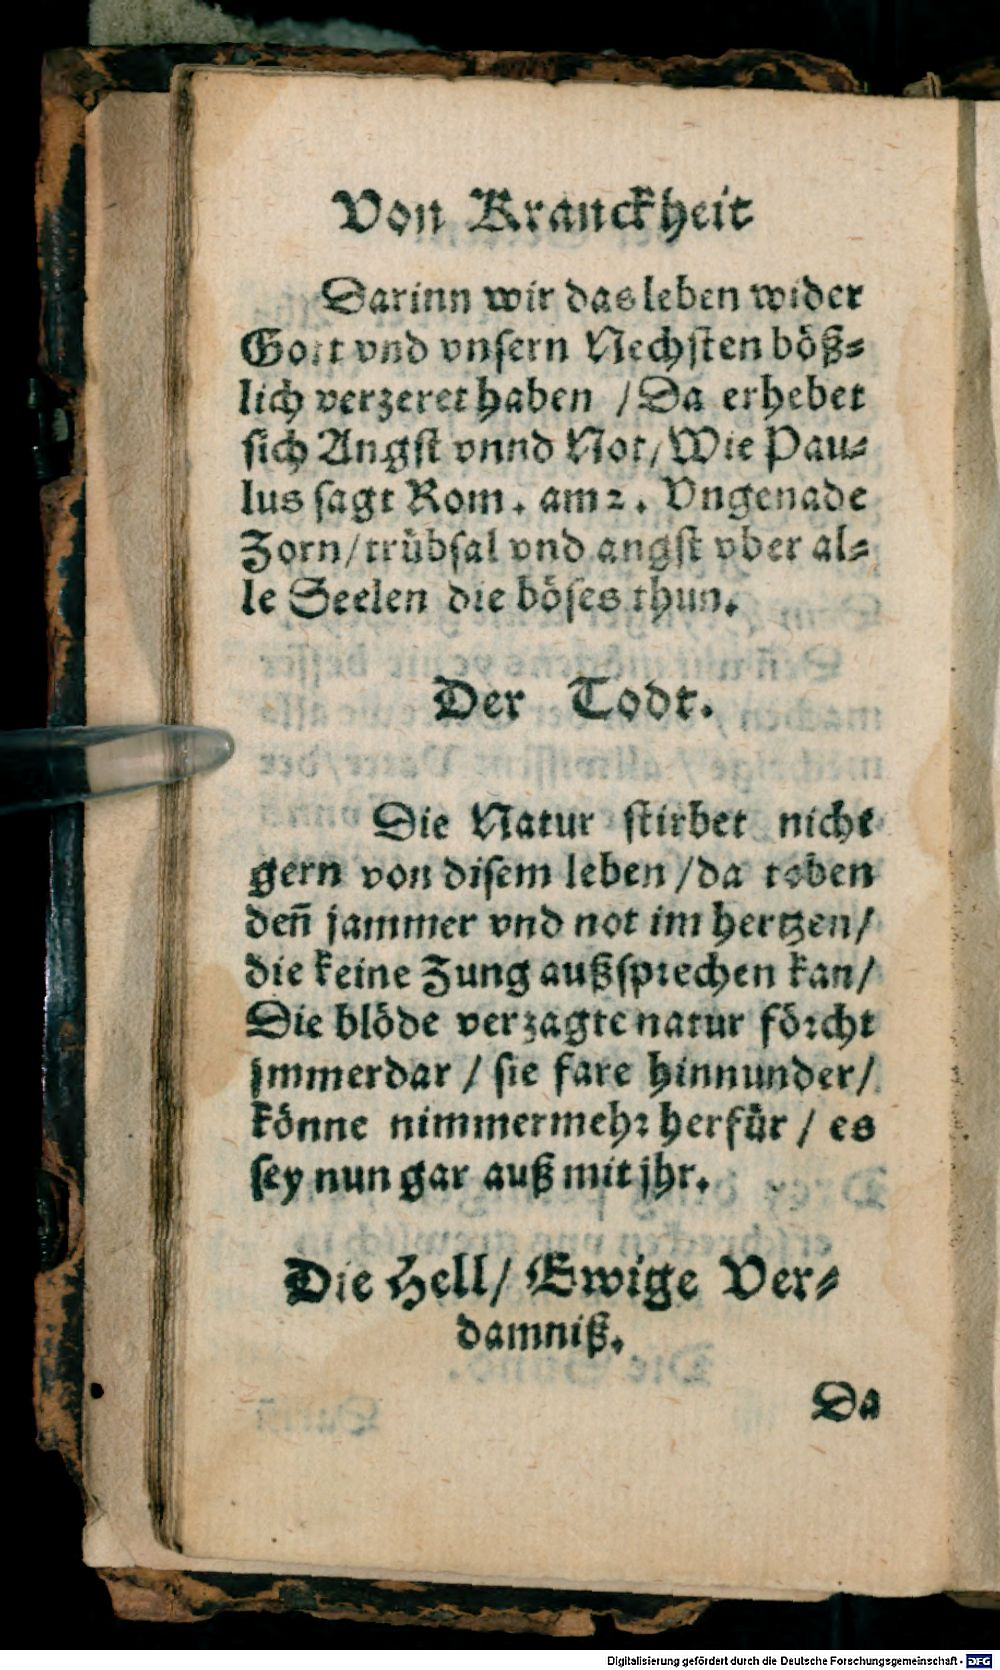 Von Kranckheit
Darinn wir das leben wider
Gott vnd vnsern Nechsten böß-
lich verzeret haben / Da erhebet
sich Angst vnnd Not / Wie Pau-
lus sagt Rom. am 2. Vngenade
Zorn / trübsal vnd angst vber al-
le Seelen die böses thun.
Der Todt.
Die Natur stirbet nicht
gern von disem leben / da toben
deñ jammer vnd not im hertzen /
die keine Zung außsprechen kan /
Die blöde verzagte natur förcht
jmmerdar / sie fare hinnunder /
könne nimmermehr herfür / es
sey nun gar auß mit jhr.
Die Hell / Ewige Ver-
damniß.
Da
Digitalisierung gefördert durch die Deutsche Forschungsgemeinschaft - DFG